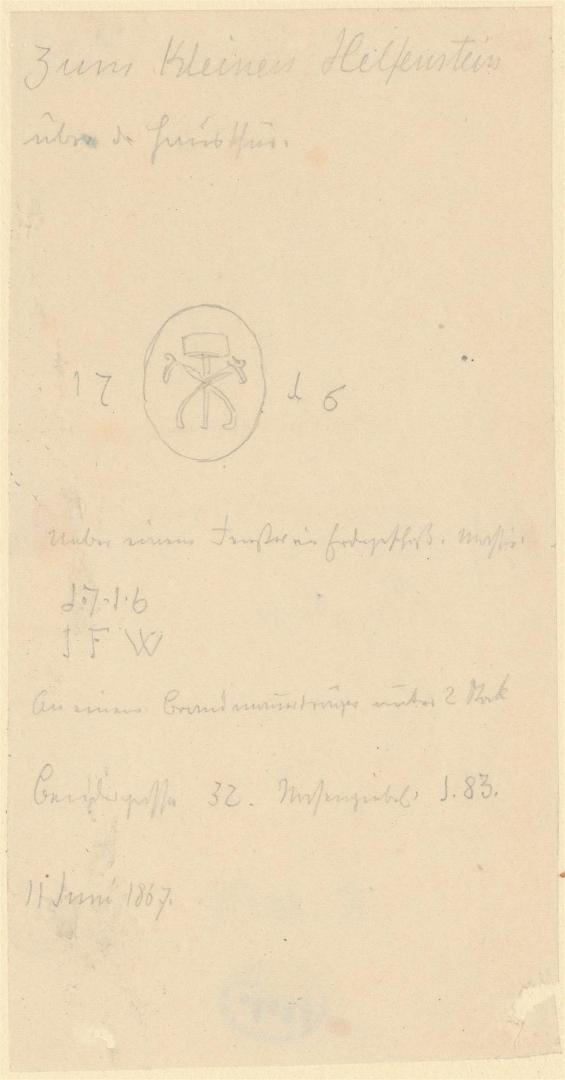 Zum Kleinen Helfenstein
über d. Hausthür.
17 16
Ueber einem Fenster im Erdgeschoß.
1.7.1.6
J F W
An einem Brandmauerträger unter 2 Stock
32. Nasengiebel. J. 83.
11 Juni 1867.